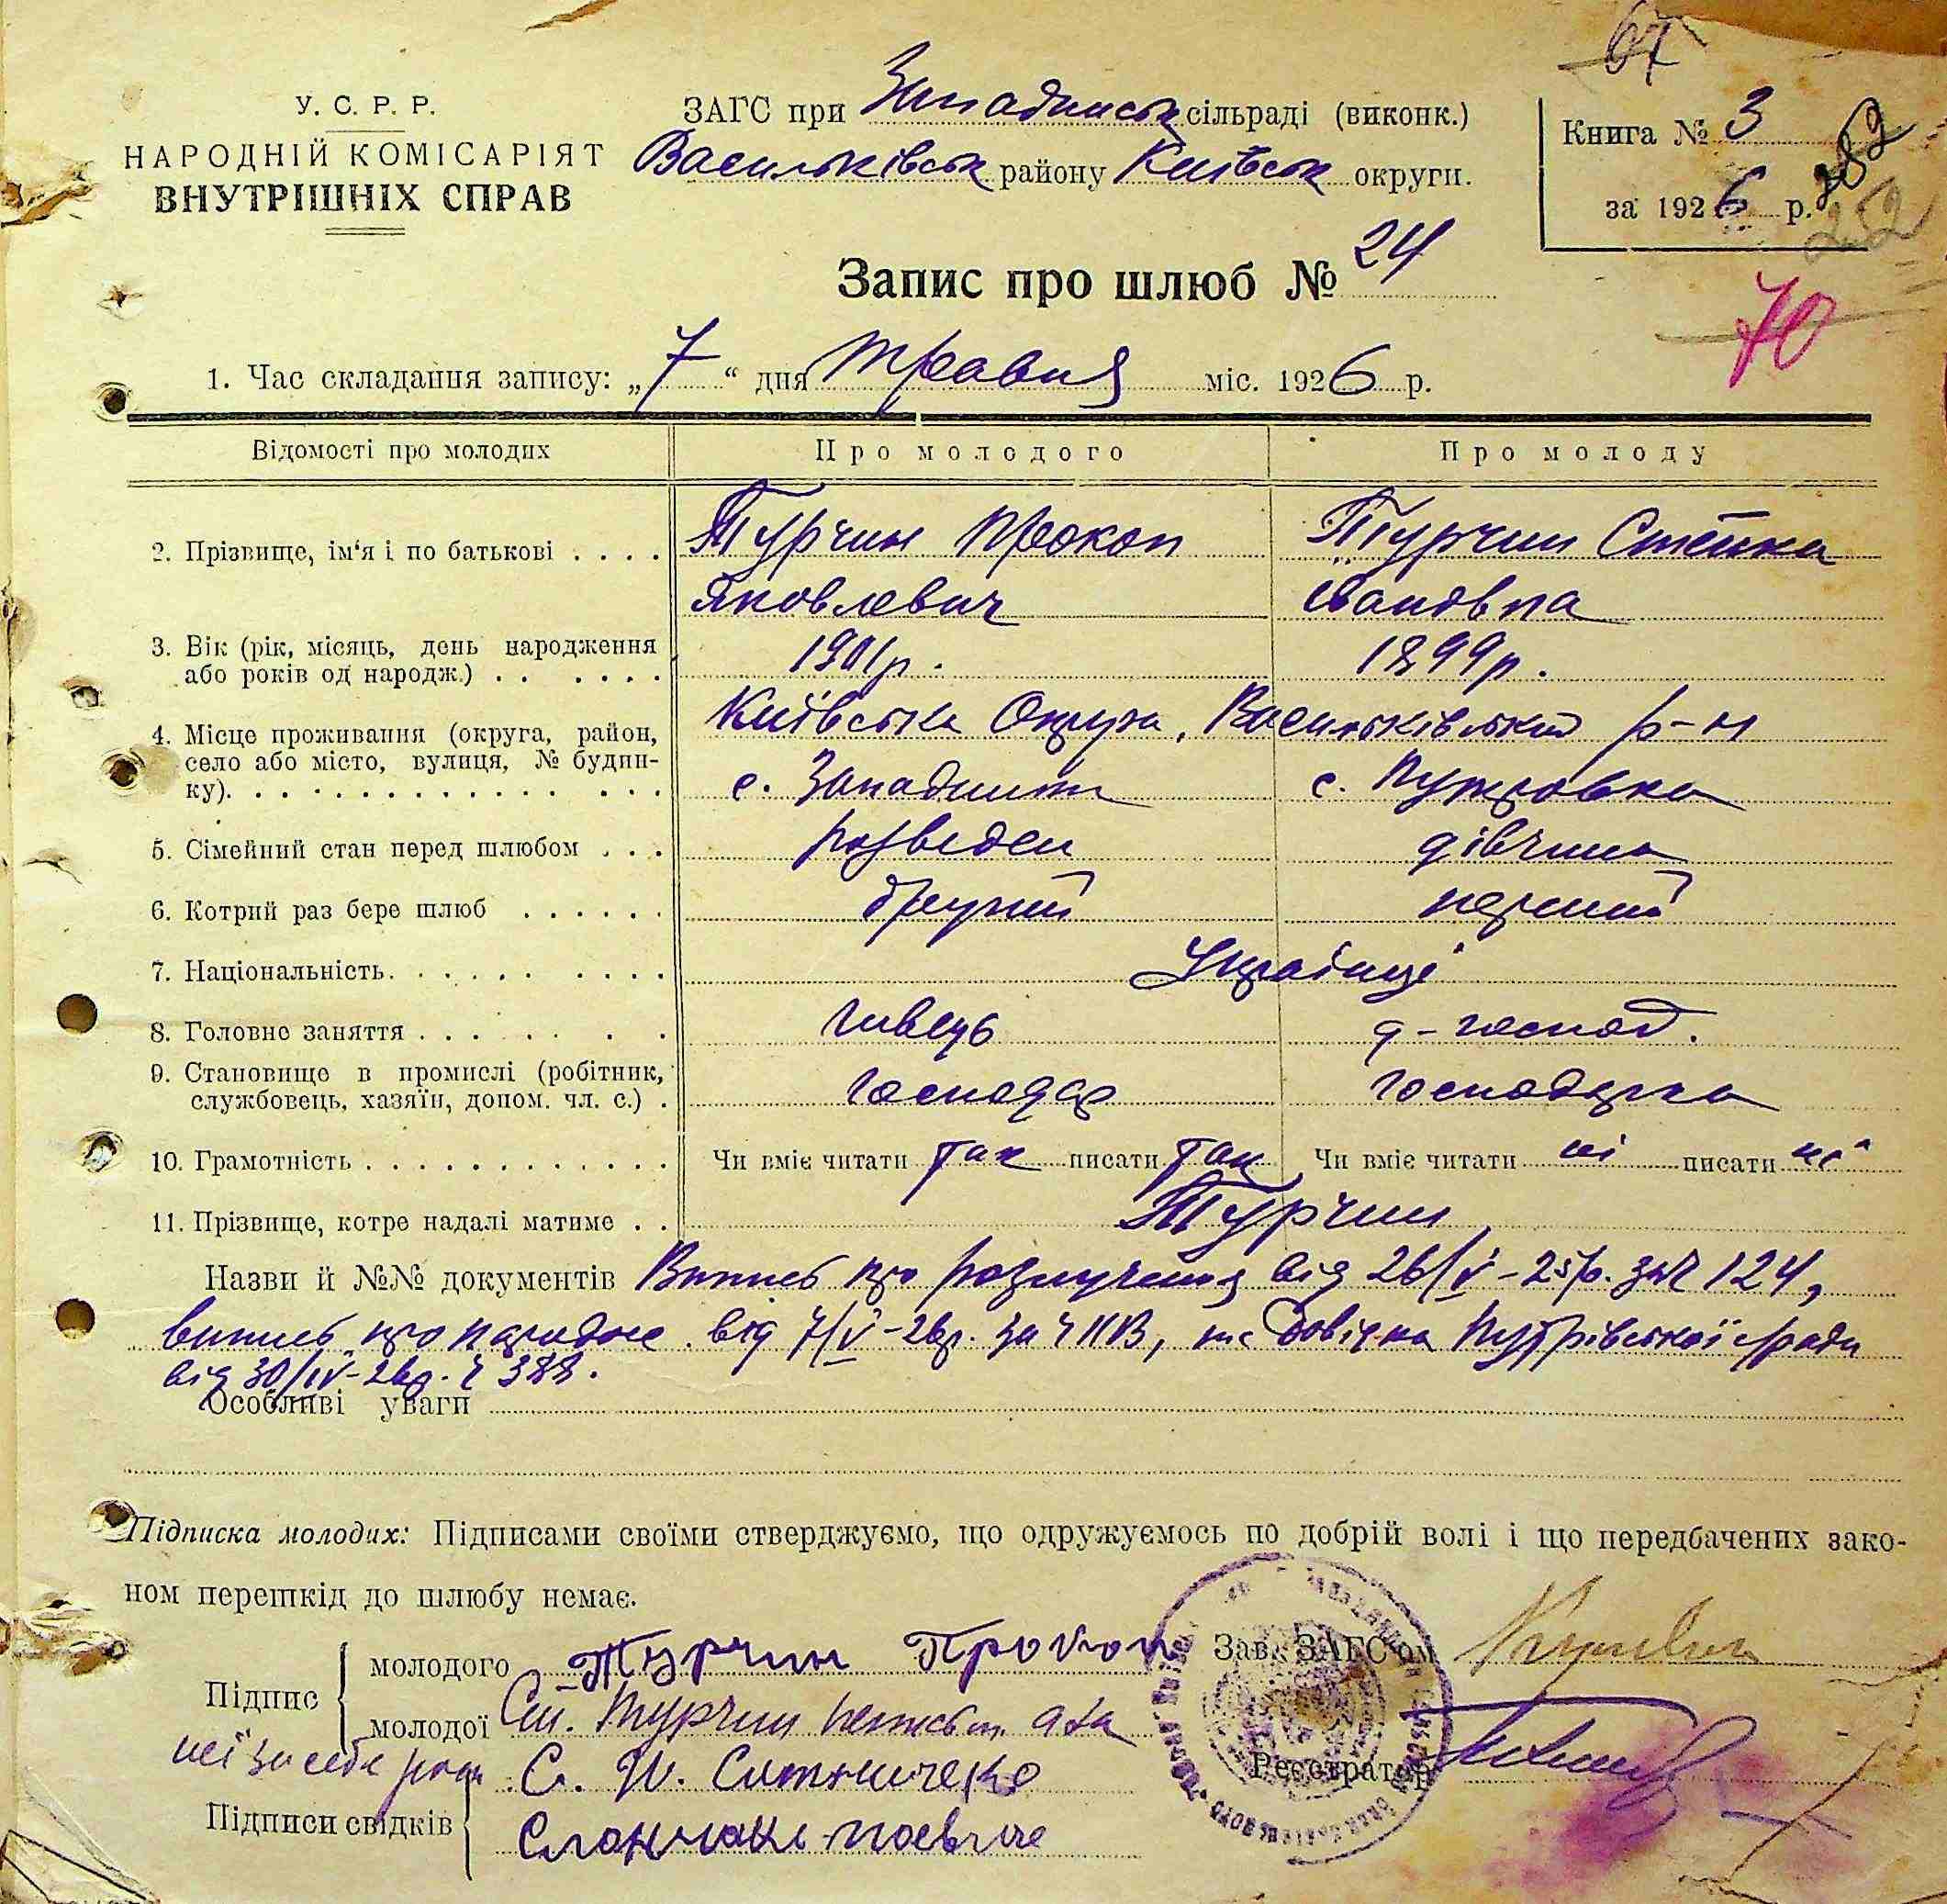 67
У. С. Р. Р.
НАРОДНІЙ КОМІСАРІЯТ
ВНУТРІШНІХ СПРАВ
ЗАГС при Западинськ сільраді (виконк.)
Васильківськ району Київськ округи.
Книга № 3
за 1926 р.
382
252
Запис про шлюб № 24
70
1. Час складання запису: „7“ дня Травня міс. 1926 р.
Відомості про молодих Про молодого Про молоду
2. Прізвище, ім‘я і по батькові . . . . Турчин Прокоп Турчин Степка
Яковлевич Івановна
3. Вік (рік, місяць, день народження
або років од народж.) . . . . . . 1901р. 1899р.
Київська Округа, Васильківський р-н
4. Місце проживання (округа, район,
село або місто, вулиця, № будин-
ку). с. Западинка с. Путровка
5. Сімейний стан перед шлюбом . . . розведен дівчина
6. Котрий раз бере шлюб . . . . . . другий перший
7. Національність. . . . . . . . . . Українці
8. Головне заняття . . . . . . . швець д-господ.
9. Становище в промислі (робітник,
службовець, хазяїн, допом. чл. с.) . господар господарка
10. Грамотність . . . . . . . . . . . . Чи вміє читати так писати так Чи вміє читати ні писати ні
11. Прізвище, котре надалі матиме . . Турчин
Назви й №№ документів Випись про розлучення від 26/V-25р. за ч 124,
випись про народж. від 7/V-26р. за ч , та Довідка Путрівської с/ради
від 30/IV-26р. ч 388.
Особливі уваги
Підписка молодих: Підписами своїми стверджуємо, що одружуємось по добрій волі і що передбачених зако-
ном перешкід до шлюбу немає.
Підпис молодого Турчин Прокоп
молодої Ст. Турчин неписьм. а за
неї за себе
Зав. ЗАГС‘ом
Реєстратор
Підписи свідків